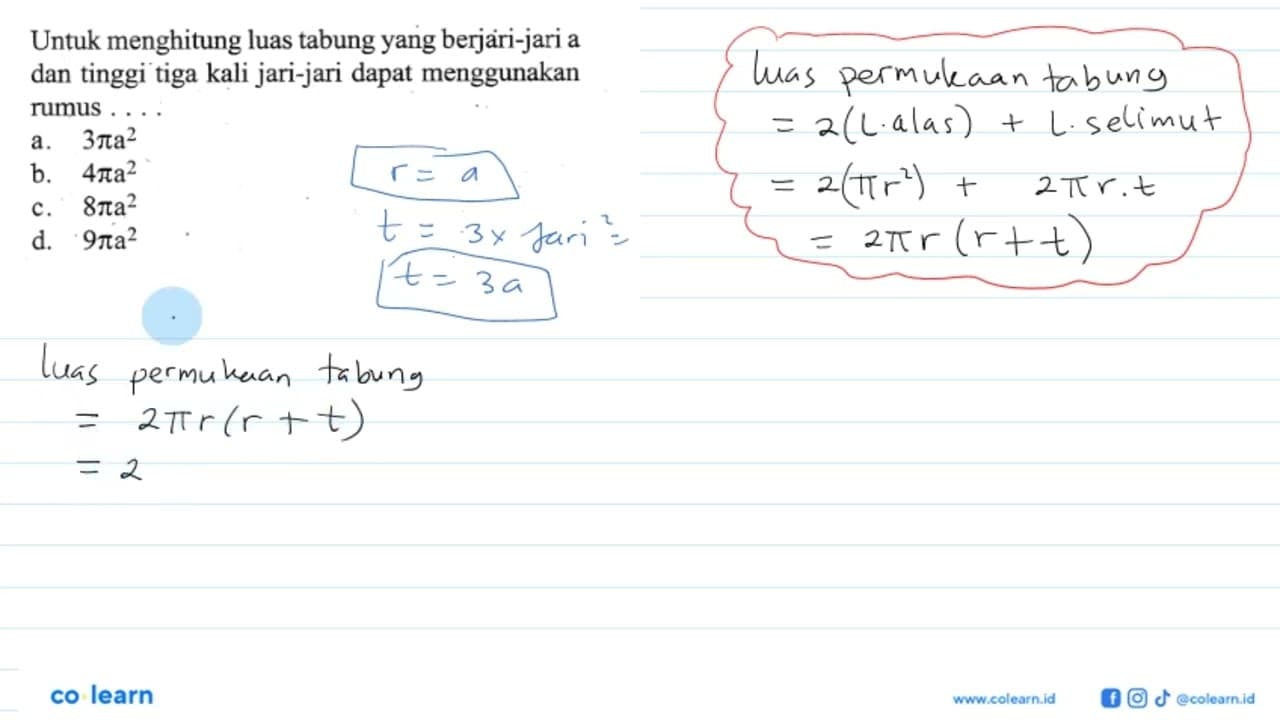 Untuk menghitung luas tabung yang berjari-jari a
dan tinggi tiga kali jari-jari dapat menggunakan
rumus . . . .
a. 3πa²
b. 4πa²
c. 8πa²
d. 9πa²
r = a
t = 3x Jari² =
t = 3a
luas permukaan tabung
= 2(L.alas) + L.selimut
= 2(πr²) + 2πr.t
= 2πr(r+t)
luas permukaan tabung
= 2πr(r + t)
= 2
co learn
www.colearn.id
@colearn.id